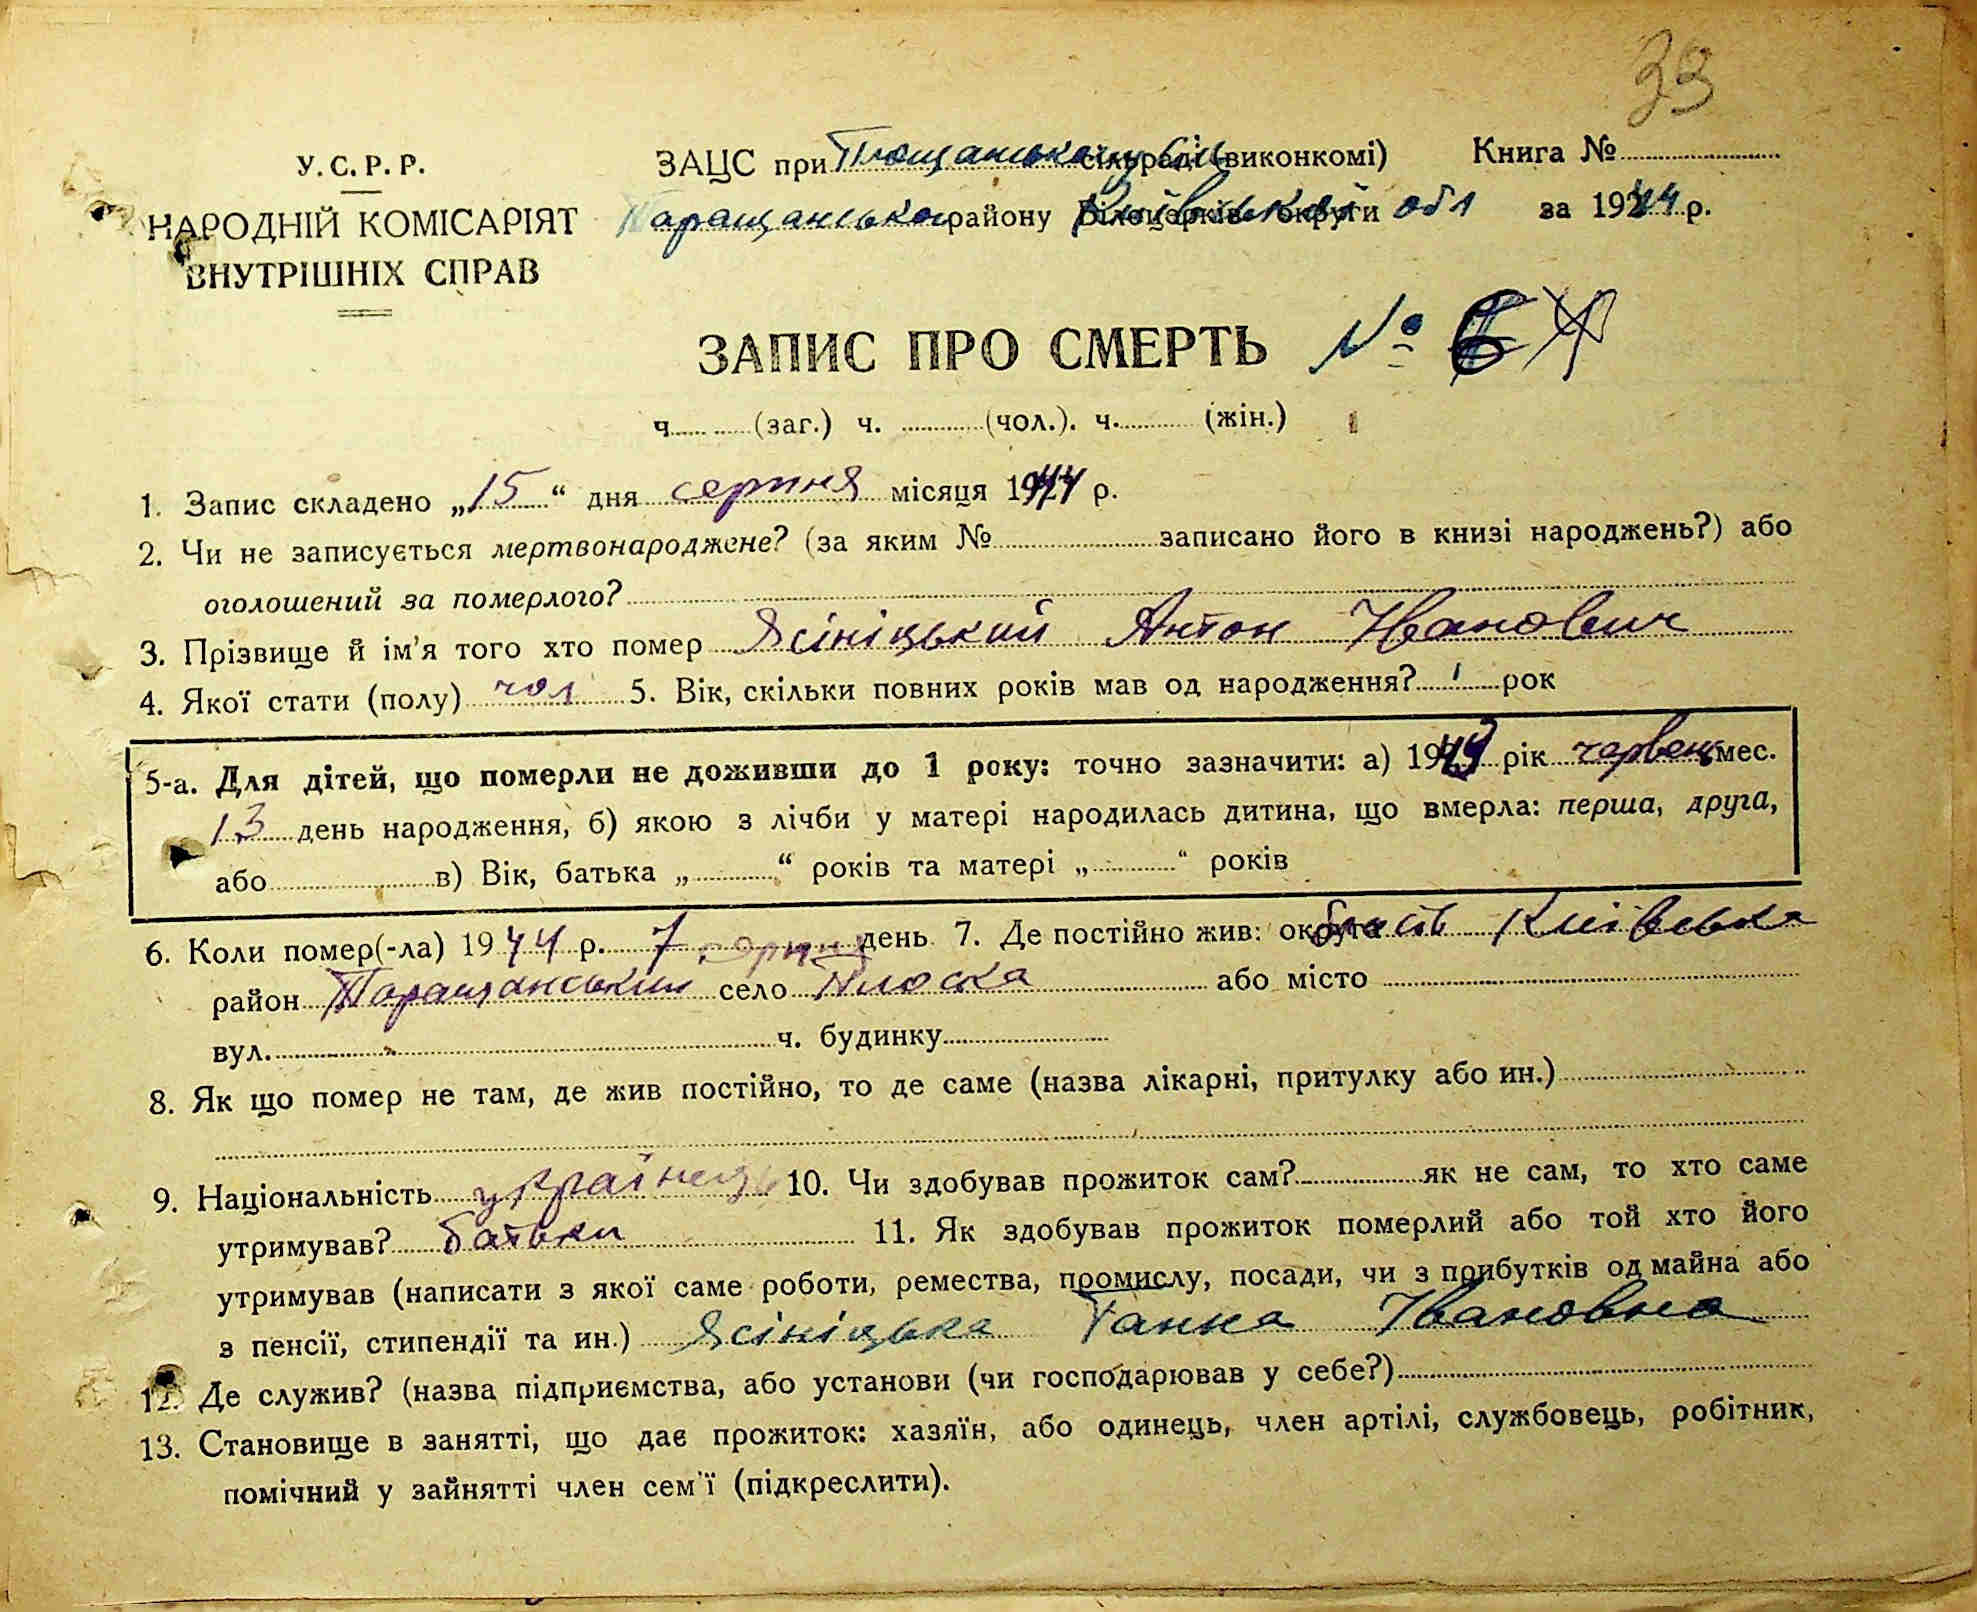 33
У.С.Р.Р.
НАРОДНІЙ КОМІСАРІЯТ
ВНУТРІШНІХ СПРАВ
ЗАЦС при сільраді (виконкомі) Книга №
Таращанського району Білоцерків. округи Київської обл за 1944 р.
ЗАПИС ПРО СМЕРТЬ № 6
ч. (заг.) ч. (чол.). ч. (жін.)
1. Запис складено „15“ дня серпня місяця 1944 р.
2. Чи не записується мертвонароджене? (за яким № записано його в книзі народжень?) або
оголошений за померлого?
3. Прізвище й ім'я того хто помер Ясініцький Антон Іванович
4. Якої стати (полу) чол 5. Вік, скільки повних років мав од народження? 1 рок
5-а. Для дітей, що померли не доживши до 1 року: точно зазначити: а) 1943 рік червень мес.
13 день народження, б) якою з лічби у матері народилась дитина, що вмерла: перша, друга,
або в) Вік, батька „ “ років та матері „ “ років
6. Коли помер(-ла) 1944 р. 7 серпня день 7. Де постійно жив: округа область Київська
район Таращанський село Плоска або місто
вул. ч. будинку
8. Як що помер не там, де жив постійно, то де саме (назва лікарні, притулку або ин.)
9. Національність українець 10. Чи здобував прожиток сам? як не сам, то хто саме
утримував? батьки 11. Як здобував прожиток померлий або той хто його
утримував (написати з якої саме роботи, ремества, промислу, посади, чи з прибутків од майна або
з пенсії, стипендії та ин.) Ясініцька Ганна Івановна
12. Де служив? (назва підприємства, або установи (чи господарював у себе?)
13. Становище в занятті, що дає прожиток: хазяїн, або одинець, член артілі, службовець, робітник,
помічний у зайнятті член сем'ї (підкреслити).